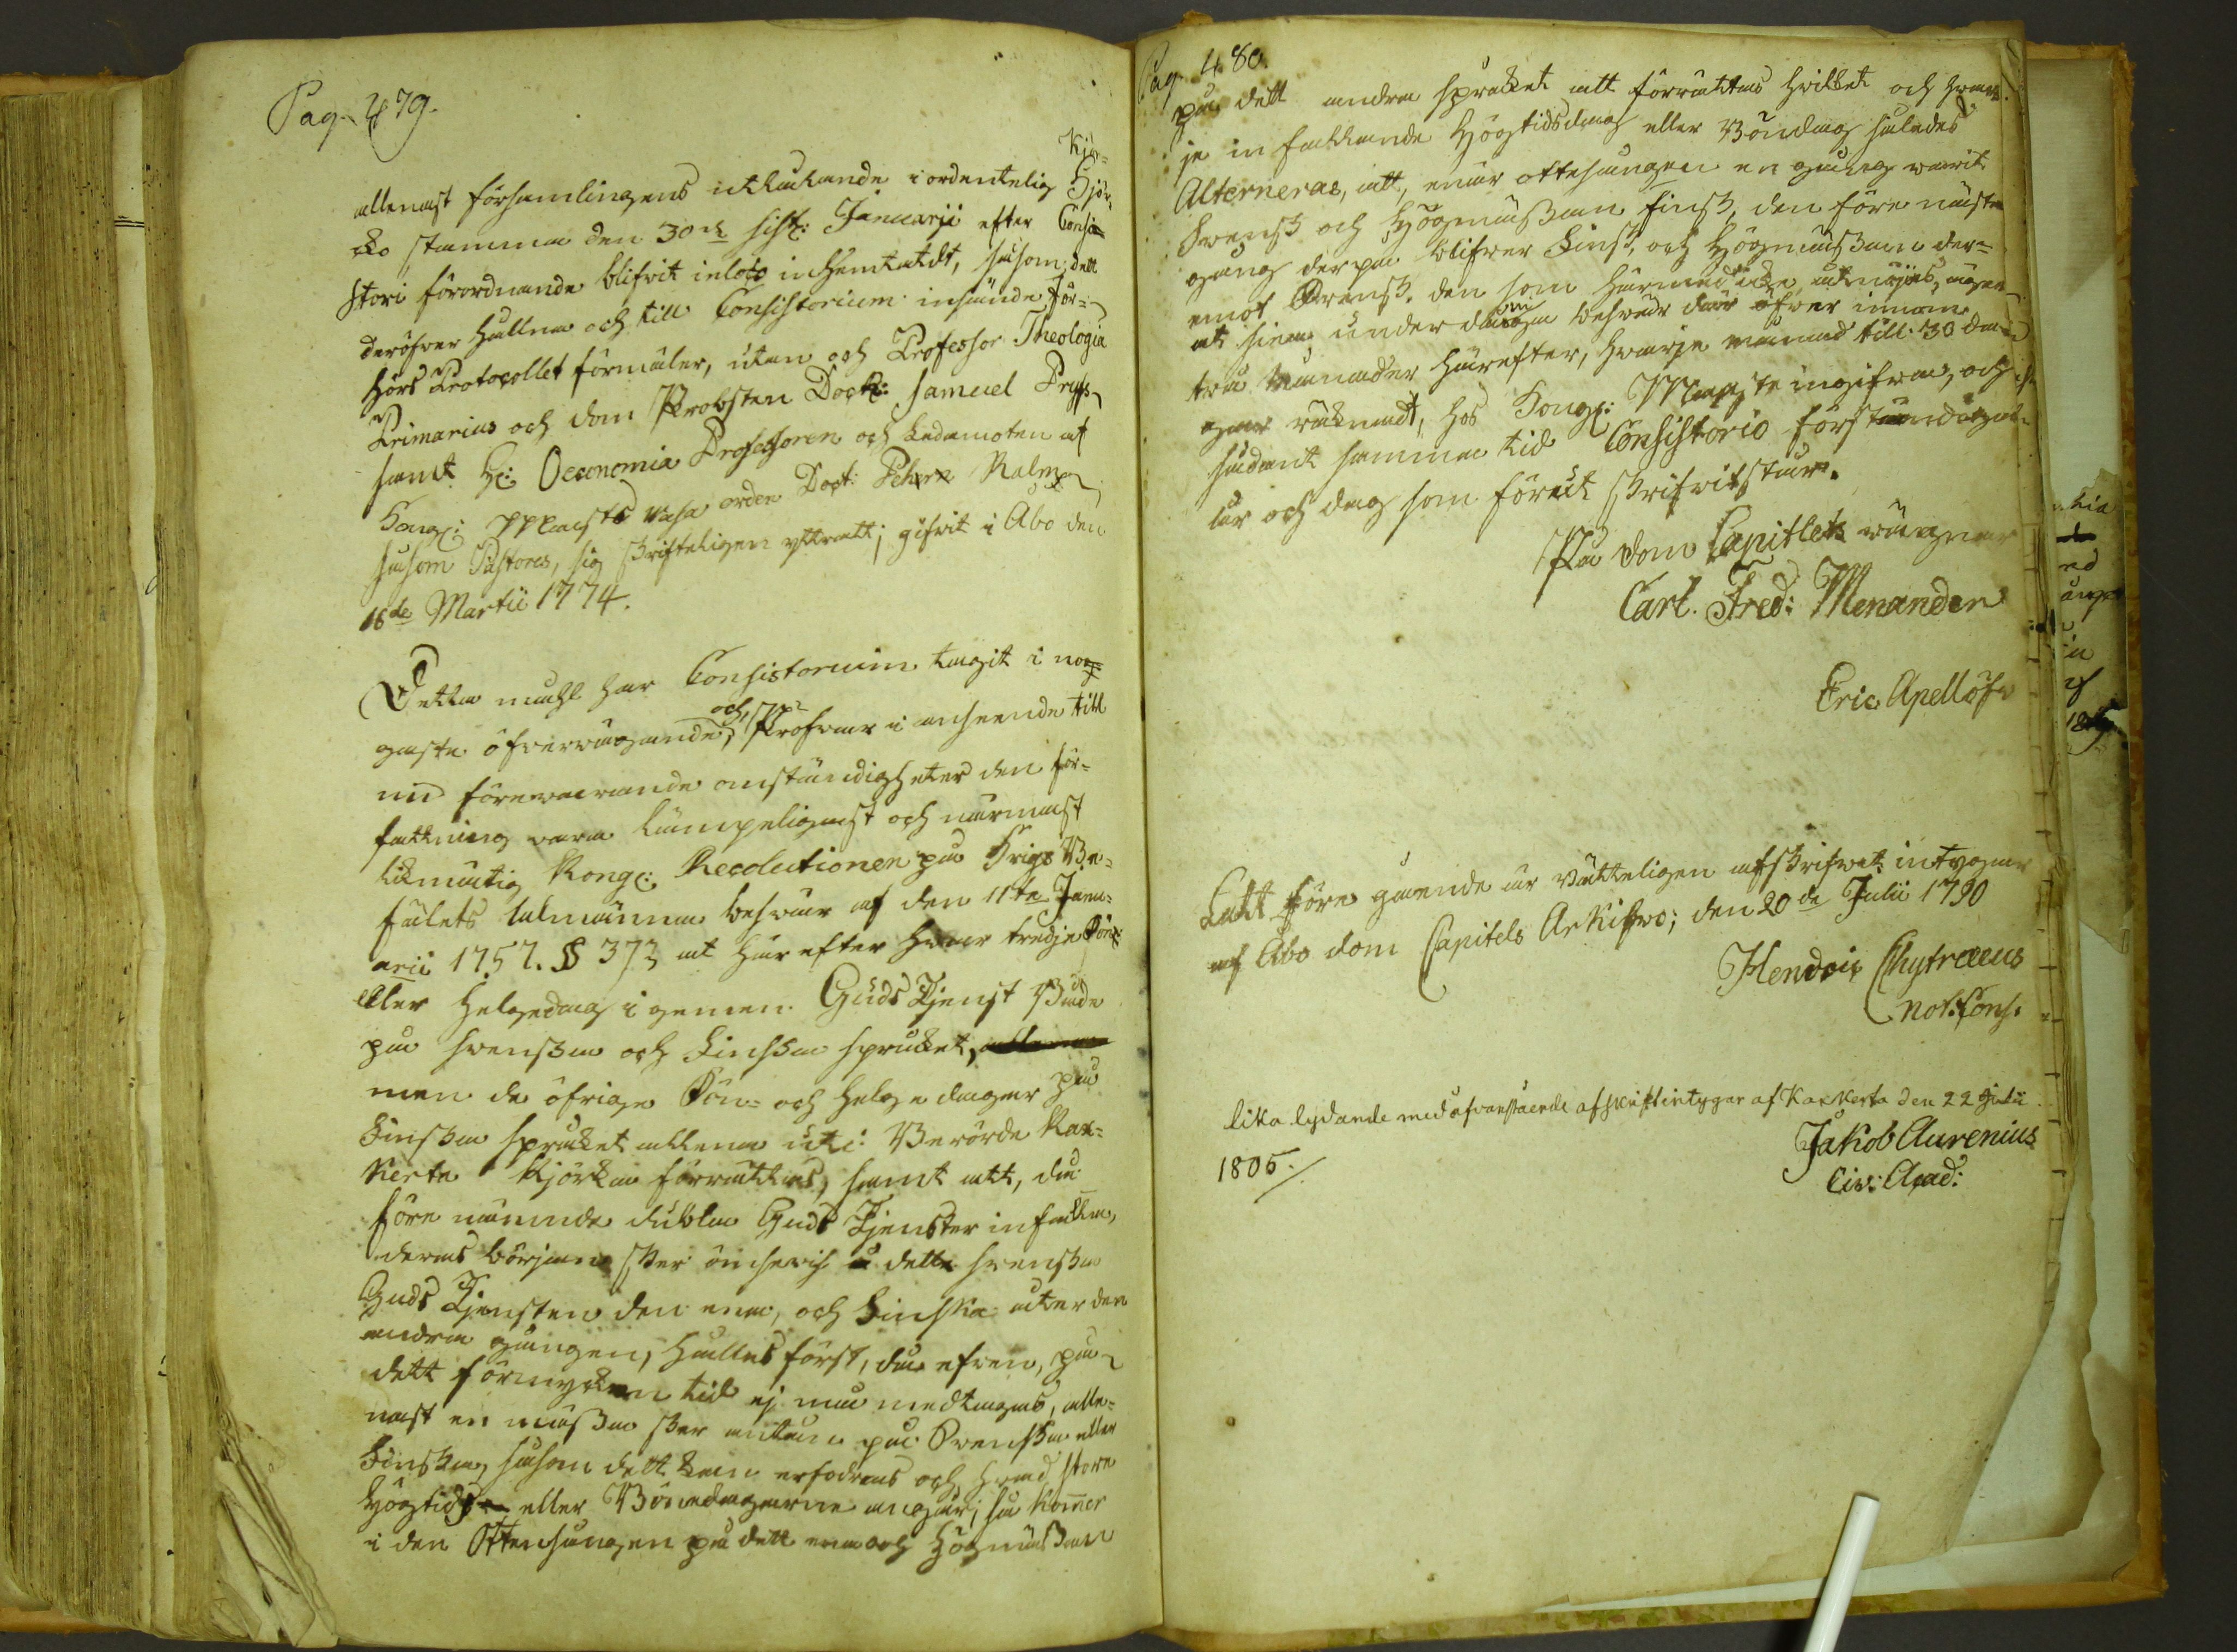 Pag. 479.
Kjör=
allenast församlingens utlåtande i ordentelig Kjör,
ko stamma den 30de sist: Januarii efter Consi
stori förordnande blifvit in loco inhemtadt, såsom dett
deröfver hållna och till Consistorium insände För=
hörs Protocollet förmäler, utan och Professor Theologia
Primarius och dom Probsten Doct: Samuel Pryss
samt H: Oeconomia Professoren och Ledamoten af
Kongl: Maijsts Wasa orden Doct: Pehr Kalm
såsom Pastores, sig skrifteligen yttratt; gifvit i Åbo den
16de Martii 1774.
Detta mahl har Consistorium tagit i nog=
gaste öfvervägande, och Pröfvar i anseende till
nu förevarande omständigheter den för=
fattning vara lämpeligast och närmast
likmätig Kongl: Resolutionen på Krigs Be=
fälets Allmänna besvär af den 11te Janu=
arii 1757. § 37, at här efter hvar tredje Sön
eller Helgedag i gemen Guds Tjenst Både
på svenska och Finska språket,
men de öfrige Sön= och helge dagar på
Finska språket allena uti Berörde Kax=
kerta Kjörka förrättas, samt att, då
före nämnde dubla Guds Tjenster infalla,
deras början sker ömsevis å dette svenska
Guds Tjensten den ena, och Finska åter den
andra gången, hålles först, då efven, på
dett förmycken tid ej må medtagas, alle=
nast en mässa sker antingen på Svenska eller
Finska, såsom dett kan erfodras och hvad store
Högtids eller Bönedagarne angår; så kommer
i den Ottesången på dett ena och Högmässan
Pag. 480.
på dett andra språket att förrättas hvilket och hvar
je in fallande Högtidsdag eller Böndag således
Alterneras, att, enär ottesången en gång varit
Svensk och Högmässan finsk, den före näste
gång derpå blifver Finsk, och Högmässan der=
emot Svensk. den som härmed icke åtnöjes, äger
at sina underdåniga besvär der öfver innom
två Månader härefter, hvarje månad till 30 da=
gar räknadt, hos Kongl: Maijst: ingifva, och
sådant samma tid Consistorio förständiga
år och dag som förut skrifvit står.
På Dom Capitlets vägnar
Carl. Fred: Menander
Eric Apellöf
Latt före gående är rätteligen afskrifvet, intygar
af Åbo dom Capitels Arkifvo; den 20de Julii 1790
Hendric Chytraeus
Not: Cons.
lika lydande med ofvanstående afskrift intygar af Kaxkerta den 22 Julii
1805.
Jakob Aurenius
Civ: Acad: